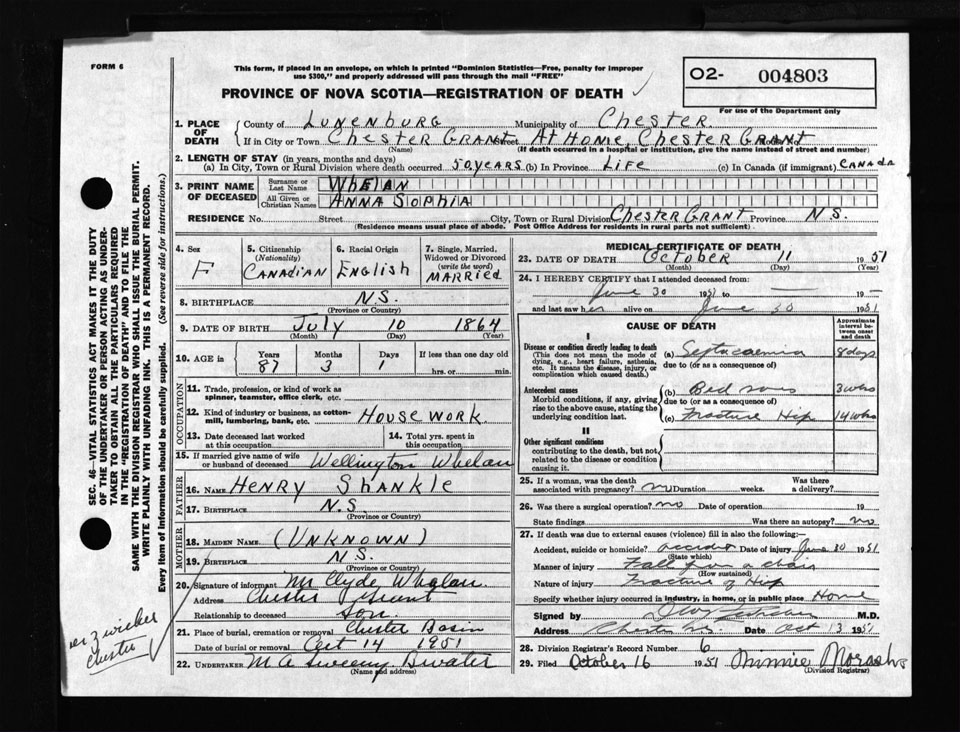 FORM 6
This form, if placed in an envelope, on which is printed "Dominion Statistics—Free, penalty for improper
use $300," and properly addressed will pass through the mail "FREE"
O2- 004803
For use of the Department only
PROVINCE OF NOVA SCOTIA—REGISTRATION OF DEATH
1. PLACE OF DEATH
County of LUNENBURG Municipality of CHESTER
If in City or Town CHESTER GRANT Street AT HOME, CHESTER GRANT
(Name) (If death occurred in a hospital or institution, give the name instead of street and number)
2. LENGTH OF STAY (in years, months and days)
(a) In City, Town or Rural Division where death occurred 50 YEARS (b) In Province LIFE (c) In Canada (if immigrant) CANADA
3. PRINT NAME OF DECEASED
Surname or Last Name WHELAN
All Given or Christian Names ANNA SOPHIA
RESIDENCE No. Street City, Town or Rural Division CHESTER GRANT Province N.S.
(Residence means usual place of abode. Post Office Address for residents in rural parts not sufficient)
4. Sex F
5. Citizenship (Nationality) CANADIAN
6. Racial Origin ENGLISH
7. Single, Married, Widowed or Divorced (write the word) MARRIED
8. BIRTHPLACE N.S.
(Province or Country)
9. DATE OF BIRTH JULY 10 1864
(Month) (Day) (Year)
10. AGE in Years Months Days If less than one day old
87 3 1 hrs. or min.
OCCUPATION
11. Trade, profession, or kind of work as
spinner, teamster, office clerk, etc.
12. Kind of industry or business, as cotton-
mill, lumbering, bank, etc. HOUSE WORK
13. Date deceased last worked
at this occupation
14. Total yrs. spent in
this occupation
15. If married give name of wife
or husband of deceased Wellington Whelan
FATHER
16. NAME HENRY SHANKLE
17. BIRTHPLACE N.S.
(Province or Country)
MOTHER
18. MAIDEN NAME (UNKNOWN)
19. BIRTHPLACE N.S.
(Province or Country)
20. Signature of informant Mr Clyde Whelan
Address Chester Grant
Relationship to deceased Son
21. Place of burial, cremation or removal Chester Basin
Date of burial or removal Oct 14 1951
22. UNDERTAKER M A Sweeny Bwater
(Name and address)
MEDICAL CERTIFICATE OF DEATH
23. DATE OF DEATH October 11 1951
(Month) (Day) (Year)
24. I HEREBY CERTIFY that I attended deceased from:
June 30 1951 to — 19—
and last saw her alive on June 30 1951
CAUSE OF DEATH
Approximate interval between onset and death
I
Disease or condition directly leading to death
(This does not mean the mode of
dying, e.g., heart failure, asthenia,
etc. It means the disease, injury, or
complication which caused death.)
(a) Septacaemia 8 days
due to (or as a consequence of)
Antecedent causes
Morbid conditions, if any, giving
rise to the above cause, stating the
underlying condition last.
(b) Bed sores 3 wks
due to (or as a consequence of)
(c) Fracture Hip 14 wks
II
Other significant conditions
contributing to the death, but not
related to the disease or condition
causing it.
25. If a woman, was the death
associated with pregnancy? no Duration weeks. Was there a delivery?
26. Was there a surgical operation? no Date of operation 19
State findings Was there an autopsy? no
27. If death was due to external causes (violence) fill in also the following:
Accident, suicide or homicide? accident Date of injury June 30 1951
(State which)
Manner of injury Fall from a chair
(How sustained)
Nature of injury Fracture of Hip
Specify whether injury occurred in industry, in home, or in public place Home
Signed by M.D.
Address Chester N.S. Date Oct 13 1951
28. Division Registrar's Record Number 6
29. Filed October 16 1951 Minnie
(Division Registrar)
SEC. 46—VITAL STATISTICS ACT MAKES IT THE DUTY
OF THE UNDERTAKER OR PERSON ACTING AS UNDER-
TAKER TO OBTAIN ALL THE PARTICULARS REQUIRED
IN THE "REGISTRATION OF DEATH" AND TO FILE THE
SAME WITH THE DIVISION REGISTRAR WHO SHALL ISSUE THE BURIAL PERMIT.
WRITE PLAINLY WITH UNFADING INK. THIS IS A PERMANENT RECORD.
Every item of Information should be carefully supplied. (See reverse side for instructions.)
Chester